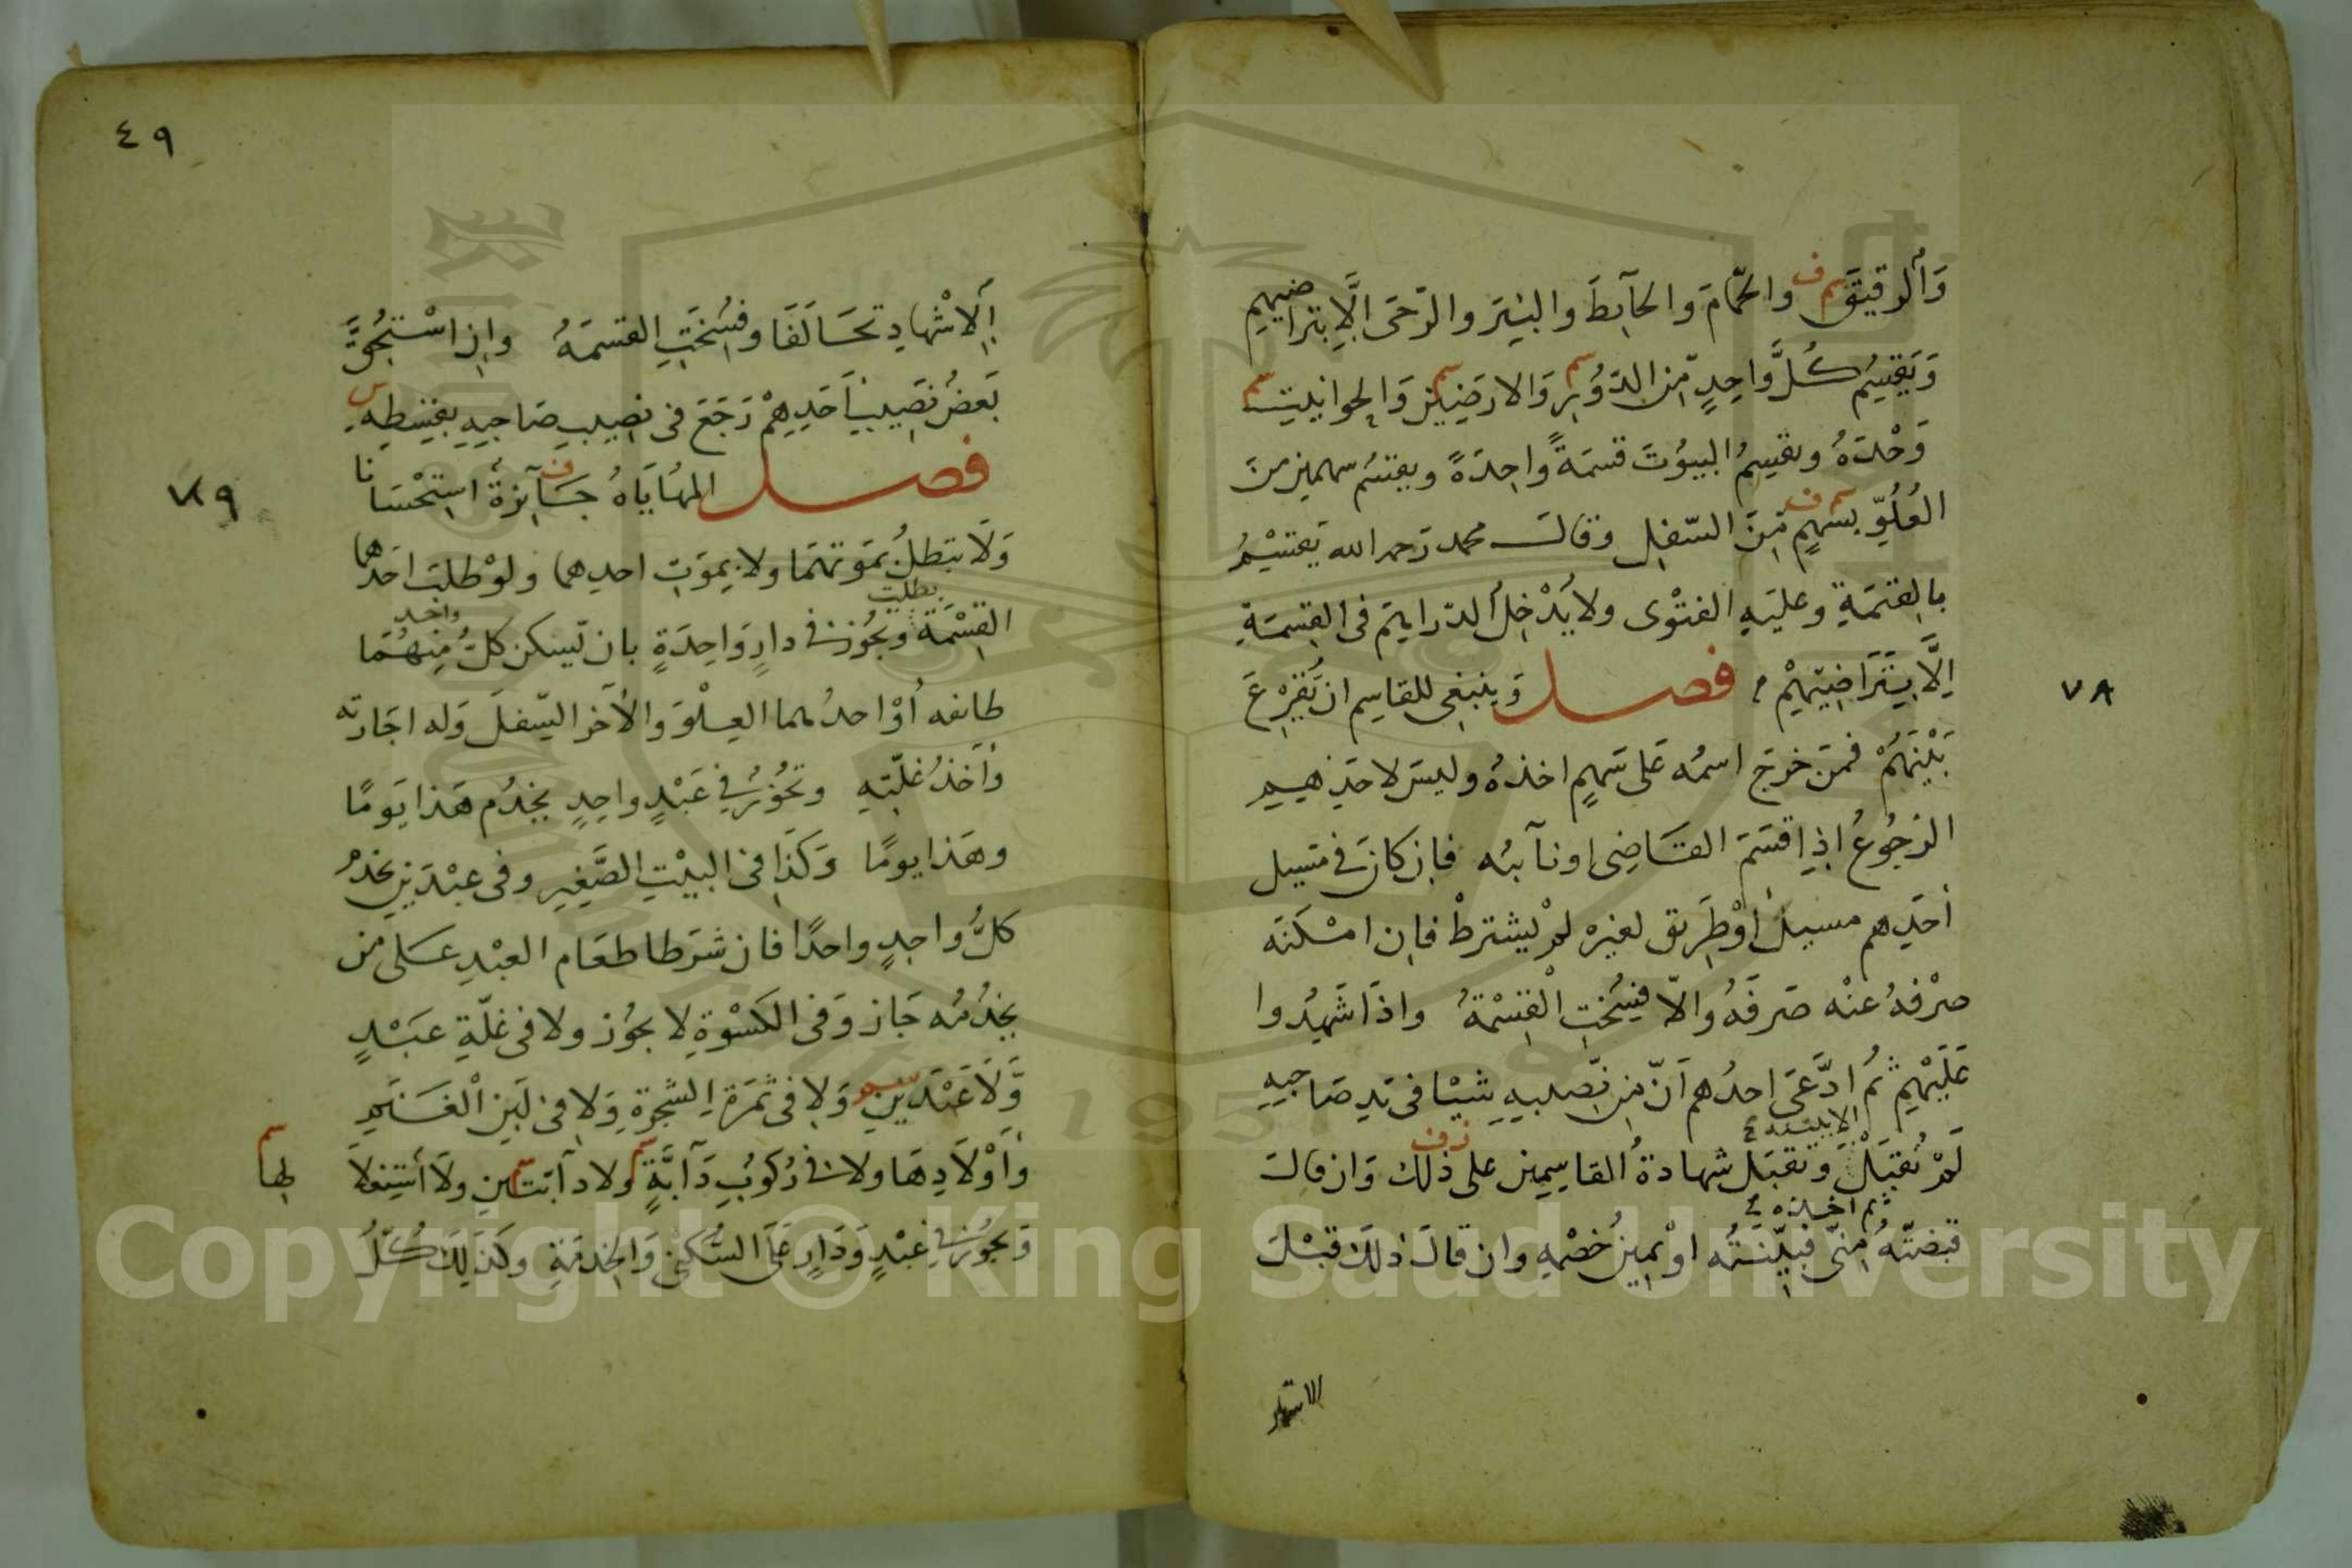 وَالرقيقَ والحمّامَ والحآئِطَ والبئِرَ والرّحَى اِلَّا بتراضيهم
وَيَقْسِمُ كُلَّ وَّاحِدٍ مِّن الدّوُرِ وَالارَضِينَ وَالحوانيتِ
وَحْدَهُ ويقسِمُ البيوُتَ قسمَةً واحِدَةً ويقسمُ سهمين من
العُلُوِّ بسَهمٍ مِّنَ السّفلِ وقالـــ محمد رَحمه الله يَقسِمُ
بالقيمَةِ وعليَهِ الفتْوى ولا يُدْخِلُ الدّراهِمَ فى القِسمَةِ
اِلَّا بِتَرَاضِيْهِمْ فصـــل وَينبغى للقاسِم ان يُّقْرِعَ
بَيْنَهُمْ فمَن خرجَ اسمُه عَلى سَهمٍ اخذهُ وليسَ لاحَدِهِم
الرجُوعُ اِذا قسَمَ القَاضِى او نآئبُه فاِن كانَ فى مسيل
اَحَدِهم مسيل اَوْ طَرِيق لغيره لمْ يشترطْ فاِن امْكنَه
صرْفهُ عنْه صَرفَهُ والاّ فسُختِ الْقِسْمَةُ واذَا شَهِدُوا
عَلَيْهِمِ ثُم ادَّعَى احدُهم اَنّ مِن نّصيبِهِ شيْئا فى يَدِ صَاحِبِهِ
لَمْ تُقبَلْ الا ببينة وَتُقبَل شهادةُ القاسِمِين على ذٰلك وَان قالَ
قبضتُهُ ثم اخذه مِنّى فبيّنتُه اوْ يمِينُ خصْمِه وان قالَ ذلكَ قَبْلَ
الاشهاد
٧٨
٤٩
اَلِاشْهادِ تحَالَفَا وفسُخَتِ القسمَةُ واِنِ اسْتُحِقَّ
بَعضُ نَصِيبِ اَحَدِهِمْ رَجَعَ فى نصِيبِ صَاحِبِهِ بقِسْطِهِ
فصـــل المُهَايَاةُ جَآئِزةُ استِحْسَانا
وَلَا تبطلُ بمَوتهِمَا ولا بِموَتِ احدِهما ولَوْ طلبَ احَدهما
القِسْمَةَ بطلت وَتجُوْز فى دارٍ وَّاحِدَةٍ بان يّسكن كلُّ واحد مِنهُمَا
طائفه اَوْ احدُهما العِلْوَ وَالاٰخر السّفلَ وَله اجَارته
وَاَخذُ غلّتِهِ وتجُوْزُ فِى عَبْدٍ واحِدٍ يخدُم هَذا يَومًا
وهَذا يومًا وَكَذَا فى البيْتِ الصَّغِيرِ وفى عبْدَينِ يخدمُ
كلُّ واحِدٍ واحدًا فان شرَطا طعَام العبْدِ عَلى من
يخدُمُه جَاز وَفى الكسْوةِ لا يجوُز ولا فى غلّةِ عبَدٍ
وَّلَا عَبْدَينِ وَلا فى ثمَرَةِ الشّجرةِ وَلا فى لبَنِ الْغَنَمِ
وَاَوْلَادِهَا ولا فى رُكوُبِ دَآبَّةٍ ولا دآبّتَينِ ولَا استِغلَا لِهِمَا
وَيجوُز فى عَبْدٍ وَدَارٍ عَلَى السُّكنى وَالخِدمَةِ وكذَلِكَ كُلُّ
٧٩
Copyright © King Saud University
1957